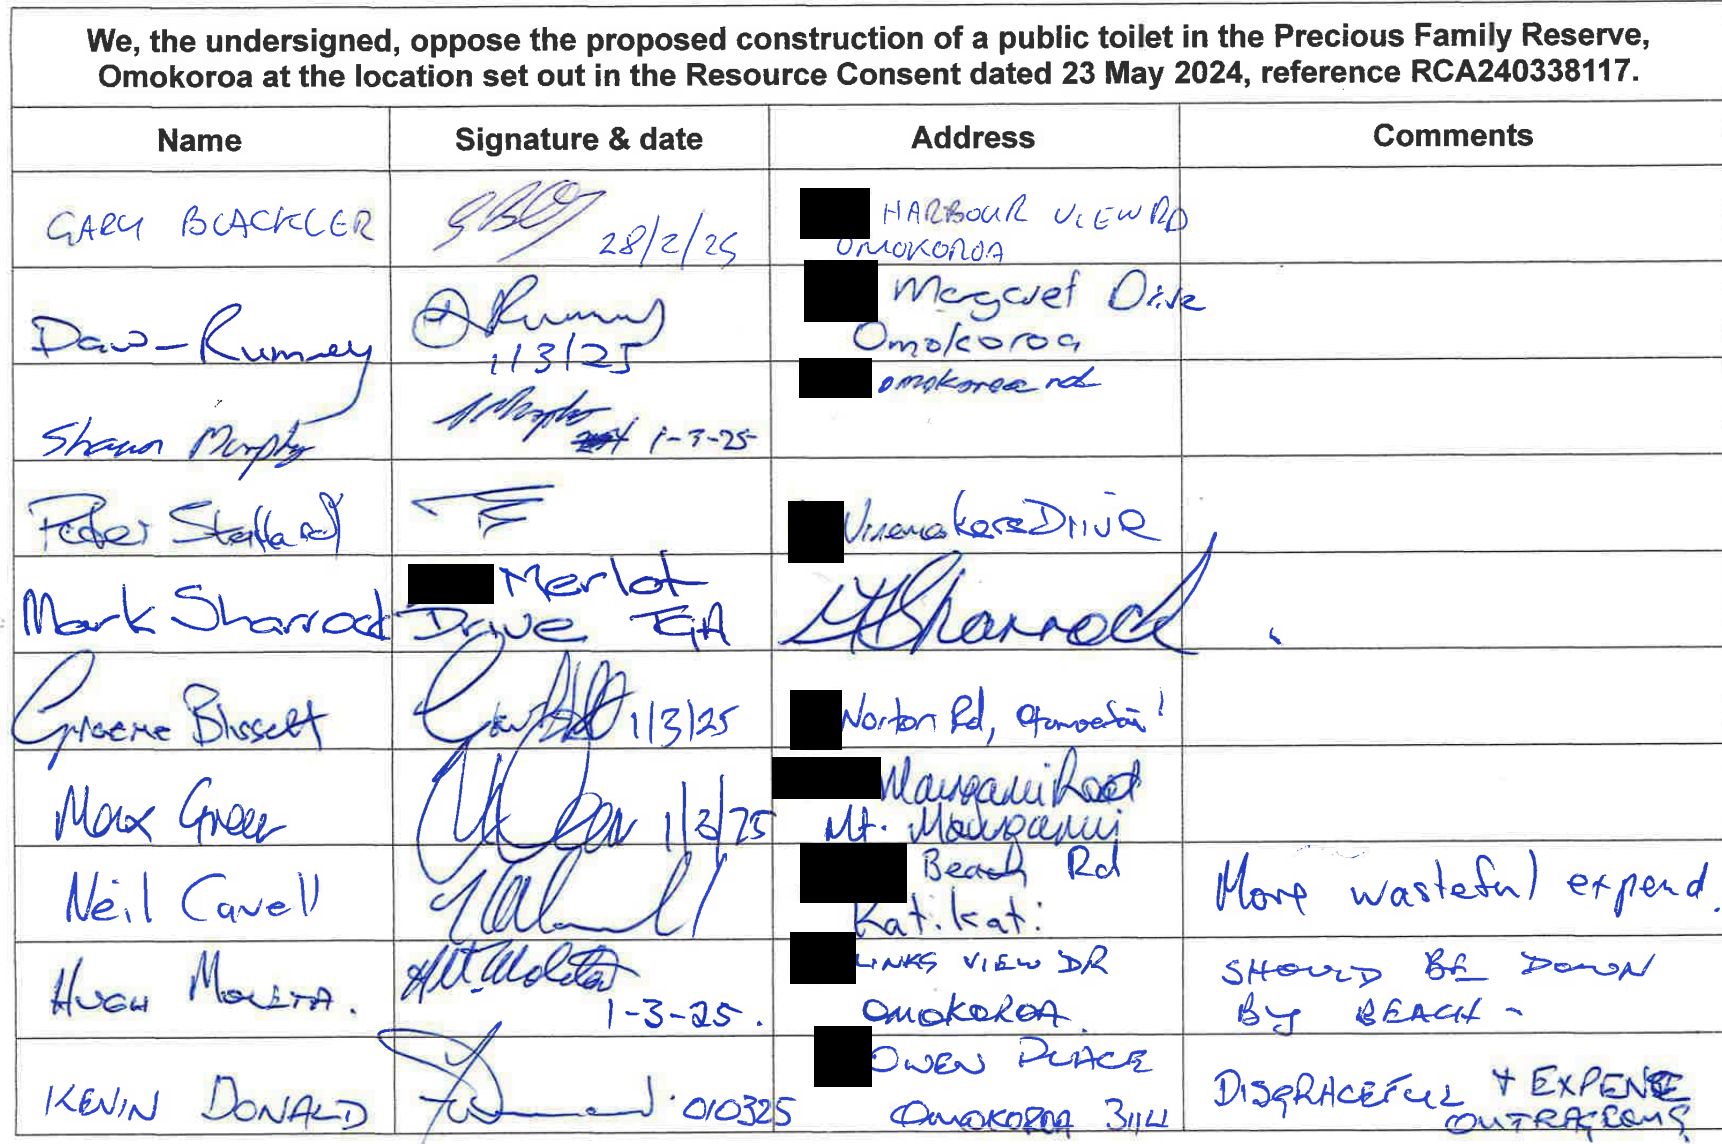 We, the undersigned, oppose the proposed construction of a public toilet in the Precious Family Reserve,
Omokoroa at the location set out in the Resource Consent dated 23 May 2024, reference RCA240338117.
Name Signature & date Address Comments
GARY BLACKLER 28/2/25 HARBOUR VIEW RD
OMOKOROA
Rumney 1/3/25 Margaret Drive
Omokoroa
Shaun Murphy 1-3-25 omokoroa rd
Peter Drive
Mark Sharrock Merlot
Drive TGA MSharrock
Graeme Blissett 1/3/25 Norton Rd,
Max Green 1/3/25 Maunganui Road
Mt. Maunganui
Neil Cavell Beach Rd
Katikati More wasteful expend.
HUGH 1-3-25. LINKS VIEW DR
OMOKOROA. SHOULD BE DOWN
BY BEACH -
KEVIN DONALD 010325 OWEN PLACE
OMOKOROA 3114 DISGRACEFUL + EXPENSE
OUTRAGEOUS